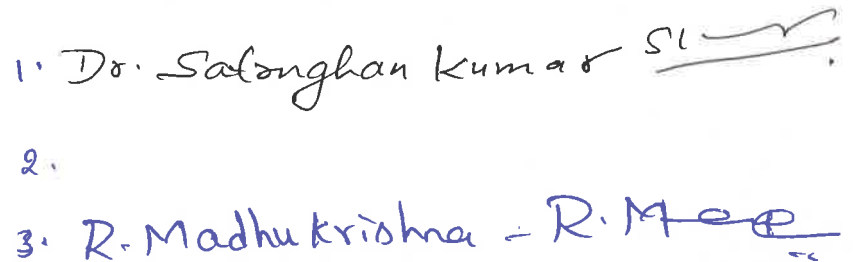 1. Dr. Satrughan Kumar
2.
3. R. Madhu Krishna - R. M